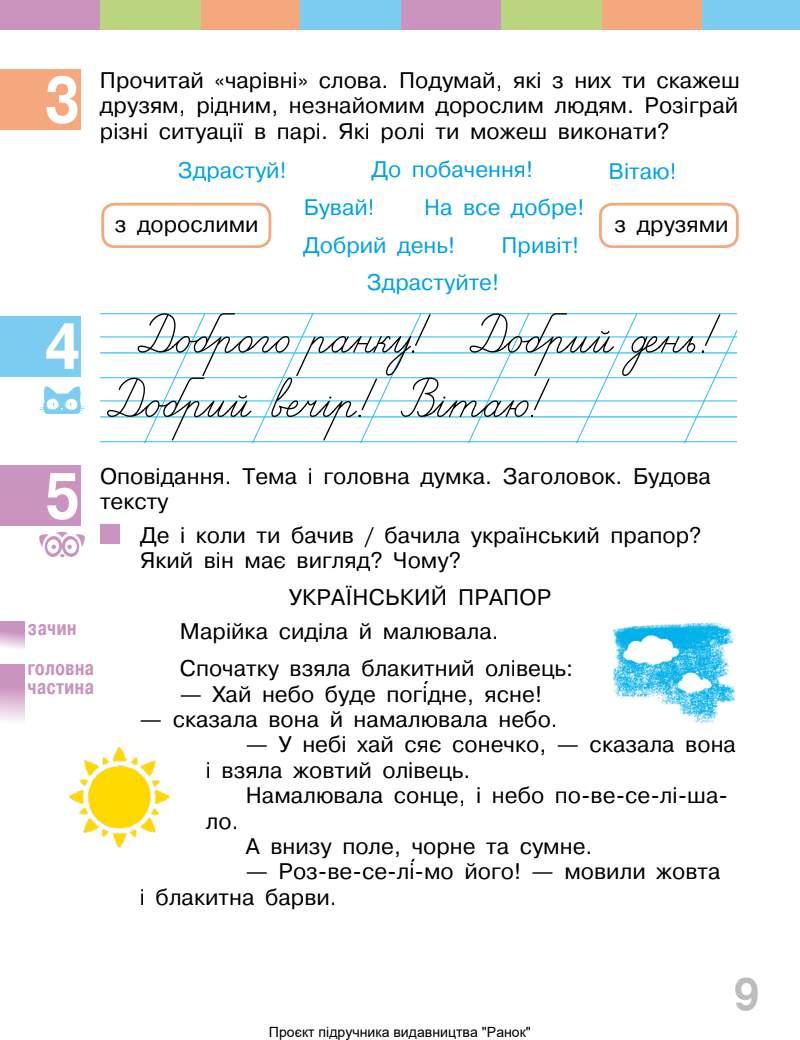 3
Прочитай «чарівні» слова. Подумай, які з них ти скажеш
друзям, рідним, незнайомим дорослим людям. Розіграй
різні ситуації в парі. Які ролі ти можеш виконати?
Здрастуй! До побачення! Вітаю!
Бувай! На все добре!
з дорослими з друзями
Добрий день! Привіт!
Здрастуйте!
4
Доброго ранку! Добрий день!
Добрий вечір! Вітаю!
5
Оповідання. Тема і головна думка. Заголовок. Будова
тексту
Де і коли ти бачив / бачила український прапор?
Який він має вигляд? Чому?
УКРАЇНСЬКИЙ ПРАПОР
зачин
Марійка сиділа й малювала.
головна
частина
Спочатку взяла блакитний олівець:
— Хай небо буде погі́дне, ясне!
— сказала вона й намалювала небо.
— У небі хай сяє сонечко, — сказала вона
і взяла жовтий олівець.
Намалювала сонце, і небо по-ве-се-лі-ша-
ло.
А внизу поле, чорне та сумне.
— Роз-ве-се-лі́-мо його! — мовили жовта
і блакитна барви.
9
Проєкт підручника видавництва "Ранок"